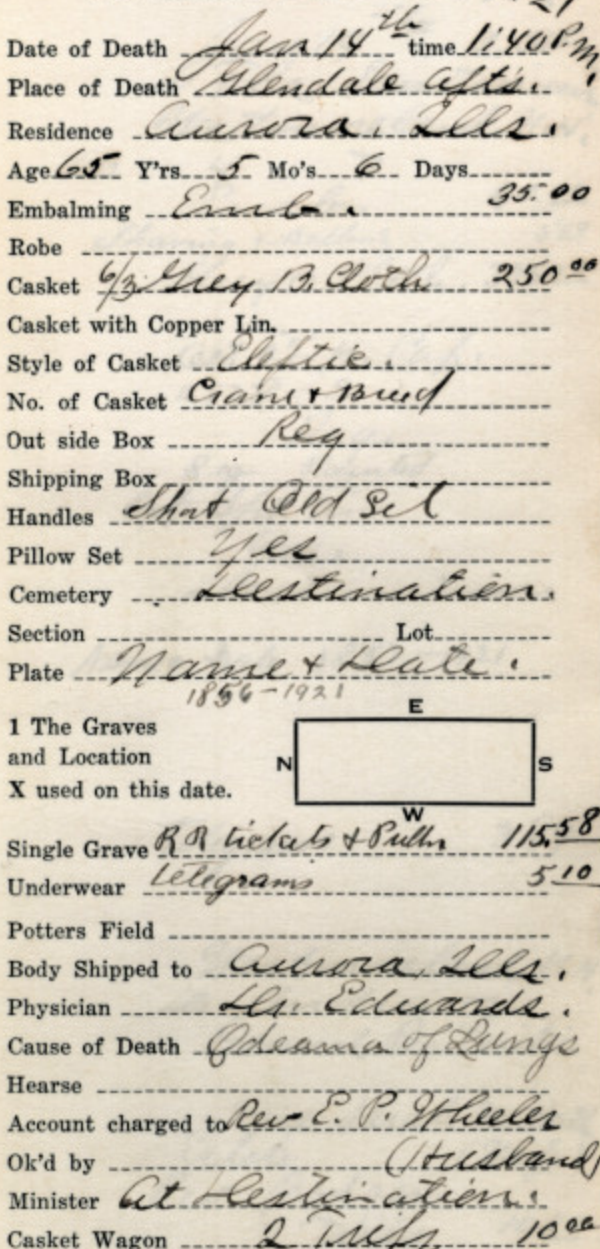 Date of Death Jan 14th time 1:40 P.M.
Place of Death Glendale Apts.
Residence Aurora, Ills.
Age 65 Y'rs 5 Mo's 6 Days
Embalming Emb. 35.00
Robe
Casket 6/3 Grey B. Cloth 250 00
Casket with Copper Lin.
Style of Casket Eliptic.
No. of Casket Crane & Breed
Out side Box Reg
Shipping Box
Handles Short Old Sil
Pillow Set Yes
Cemetery Destination.
Section Lot
Plate Name & Date.
1856-1921
1 The Graves
and Location
X used on this date.
E
N
S
W
Single Grave R R tickets & Pulln 115.58
Underwear telegrams 5 10
Potters Field
Body Shipped to Aurora, Ills.
Physician Dr. Edwards.
Cause of Death Odeama of Lungs
Hearse
Account charged to Rev E. P. Wheeler
Ok'd by (Husband)
Minister At Destination.
Casket Wagon 2 Trips 10 00